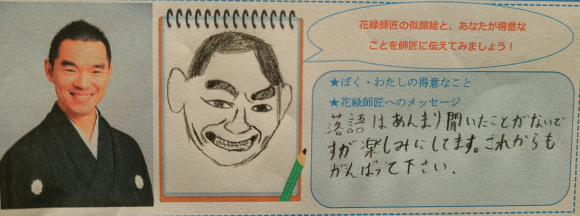 花緑師匠の似顔絵と、あなたが得意な
ことを師匠に伝えてみましょう！
★ぼく・わたしの得意なこと
★花緑師匠へのメッセージ
落語はあんまり聞いたことがないで
すが楽しみにしてます。これからも
がんばって下さい。